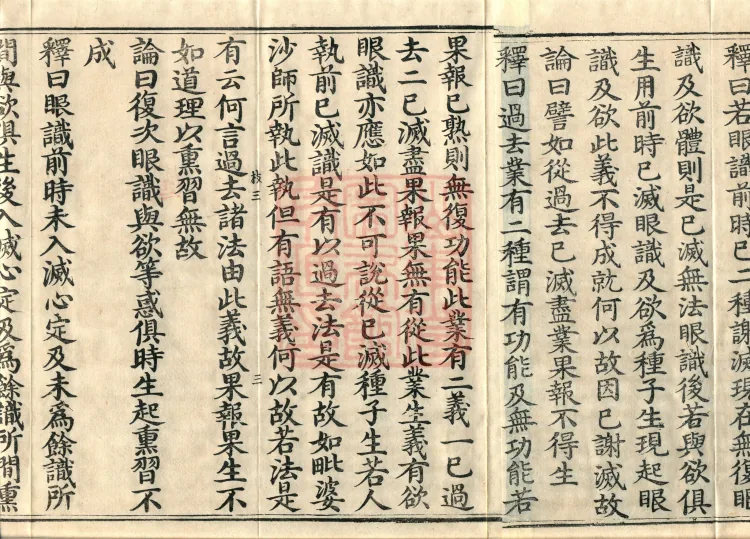 釋曰若眼識前時已二種謝滅現在無復眼
識及欲體則是已滅無法眼識後若與欲俱
生用前時已滅眼識及欲爲種子生現起眼
識及欲此義不得成就何以故因已謝滅故
論曰譬如從過去已滅盡業果報不得生
釋曰過去業有二種謂有功能及無功能若
果報已熟則無復功能此業有二義一已過
去二已滅盡果報果無有從此業生義有欲
眼識亦應如此不可說從已滅種子生若人
執前已滅識是有以過去法是有故如毗婆
沙師所執此執但有語無義何以故若法是
枝三
三
有云何言過去諸法由此義故果報果生不
如道理以熏習無故
論曰復次眼識與欲等惑俱時生起熏習不
成
釋曰眼識前時未入滅心定及未爲餘識所
間與欲俱生後入滅心定及爲餘識所間熏